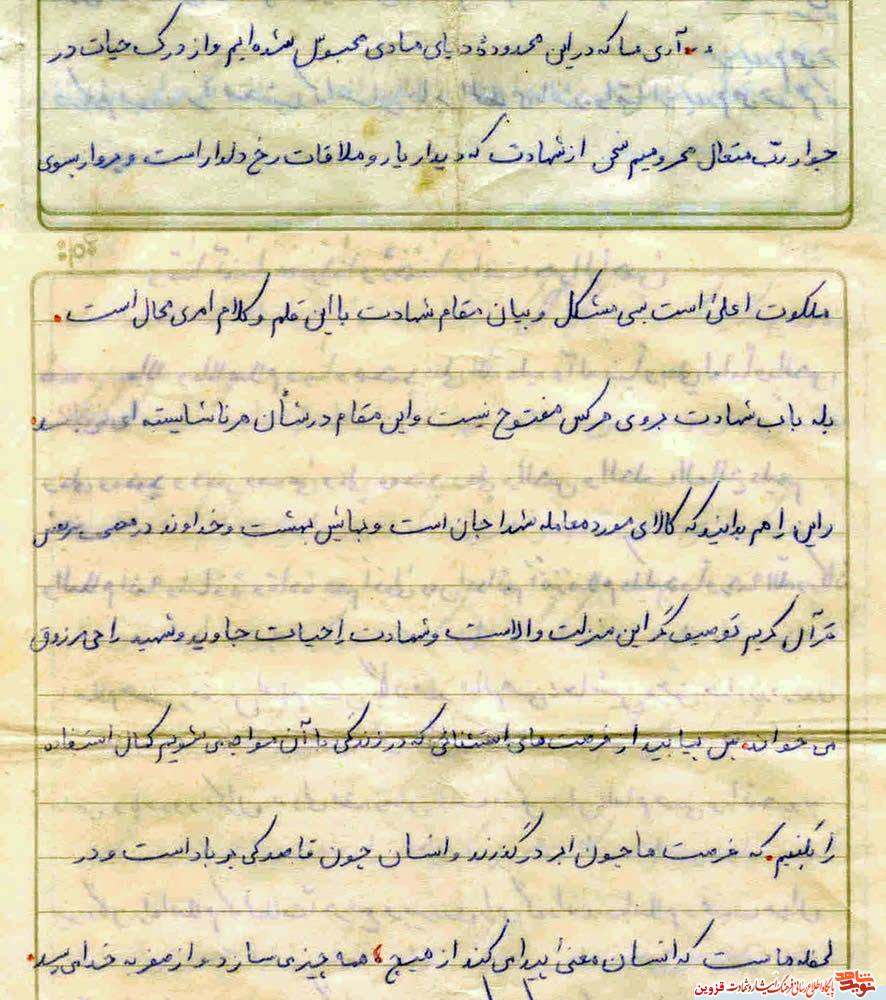 آری ما که در این محدودهٔ دنیای مادی محبوس شده ایم و از درک حیات در
جوار ربّ متعال محرومیم سخن از شهادت که دیدار یار و ملاقات رخ دلدار است و پرواز بسوی
ملکوت اعلیٰ است بسی مشکل و بیان مقام شهادت با این قلم و کلام امری محال است.
بله باب شهادت بروی هر کس مفتوح نیست و این مقام در شأن هر ناشایسته ای نمی باشد.
و این را هم بدانید که کالای مورد معامله شهدا جان است و بهایش بهشت و خداوند در
قرآن کریم توصیف گر این منزلت والاست و شهادت را حیات جاوید و شهید را حی مرزوق
می خواند، پس بیایید از فرصت های استثنائی که در زندگی با آن مواجه می شویم کمال استفاده
را بکنیم. که فرصت ها چون ابر در گذرند و انسان چون قاصدکی بر باد است و در
لحظه هاست که انسان معنیٰ پیدا می کند از هیچ، همه چیز می سازد و از صفر به خدا می رسد.
نوید شاهد
پایگاه اطلاع رسانی فرهنگ ایثار و شهادت قزوین